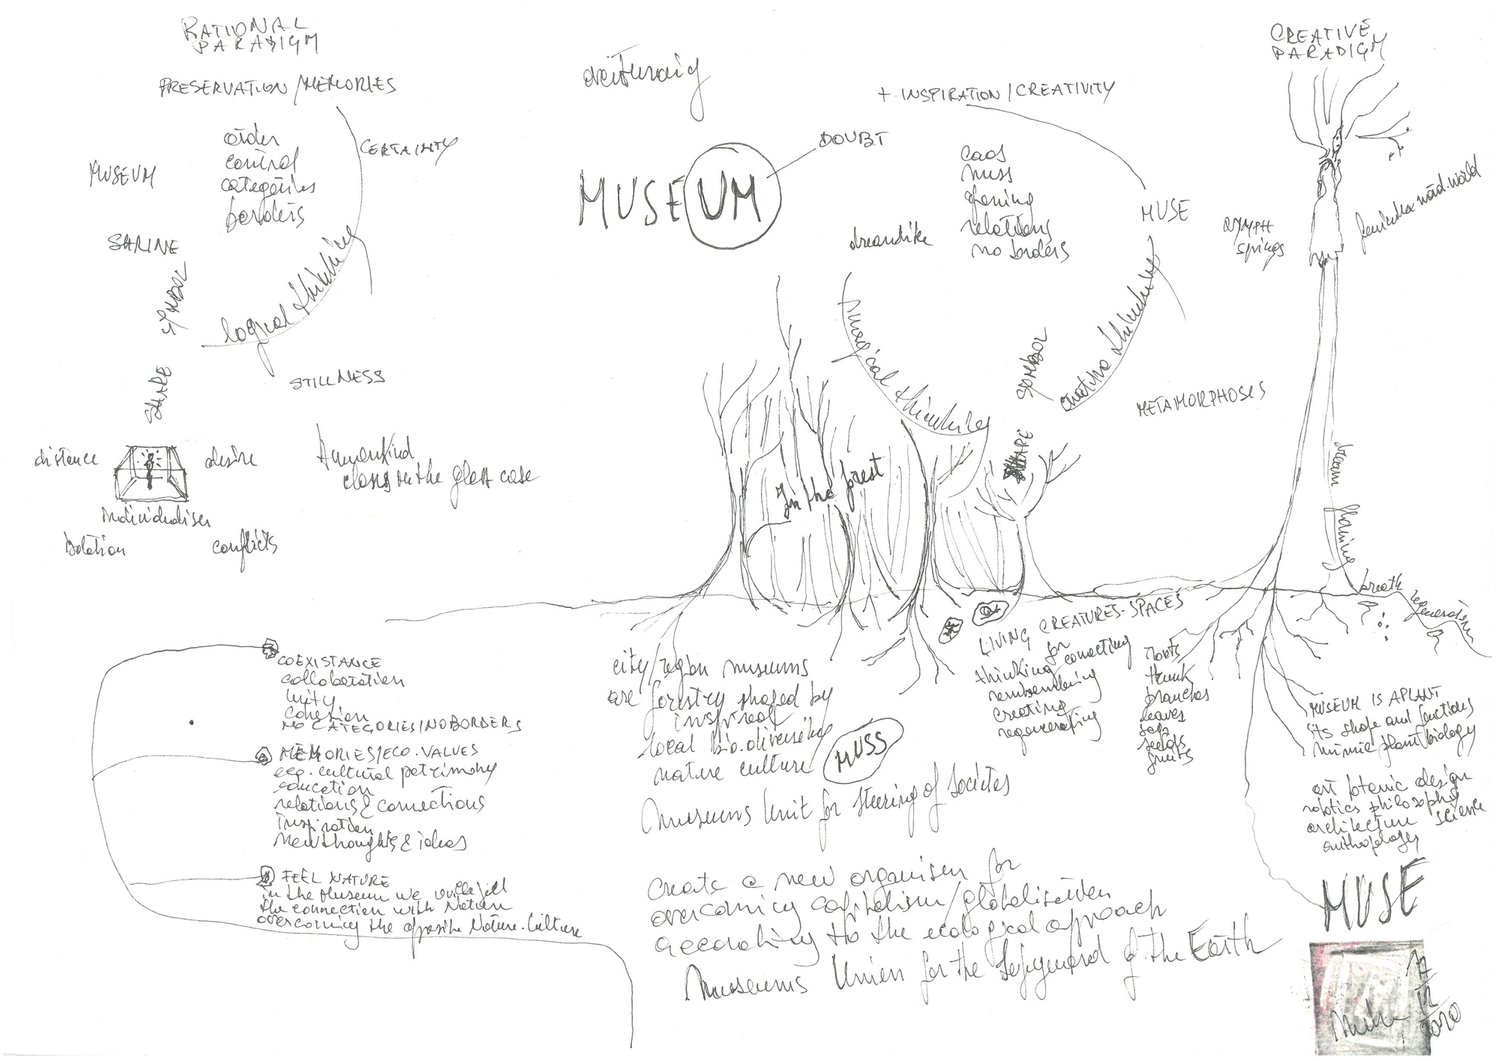 RATIONAL
PARADIGM
PRESERVATION/MEMORIES
CERTAINTY
MUSEUM
order
control
categories
borders
SHRINE
SYMBOL
logical thinking
SHARE
STILLNESS
distance
desire
individualism
isolation
conflicts
Humankind
close in the glass case
MUSEUM
DOUBT
+ INSPIRATION/CREATIVITY
caos
mess
opening
relations
no borders
dreamlike
MUSE
magical thinking
creative thinking
SYMBOL
SHARE
METAMORPHOSES
In the forest
CREATIVE
PARADIGM
NYMPH
springs
dream
breath
regeneration
COEXISTANCE
collaboration
unity
cohesion
NO CATEGORIES/NO BORDERS
MEMORIES/ECO.VALUES
eco.cultural patrimony
education
relations & connections
inspiration
new thoughts & ideas
FEEL NATURE
in the Museum we will feel
the connection with Nature
overcoming the opposite Nature-Culture
city/region museums
are forestry shaped by
inspired
local bio.diversity
nature culture
MUSS
Museums Unit for Steering of Societes
LIVING CREATURES-SPACES
for
thinking connecting
remembering
creating
regenerating
roots
trunk
branches
leaves
sap
seeds
fruits
MUSEUM IS A PLANT
its shape and functions
mimic plant biology
art botanic design
robotics philosophy
architecture science
anthopology
MUSE
Create a new organism for
overcoming capitalism/globalisation
according to the ecological approach
Museums Union for the Safeguard of the Earth
17
12
2020